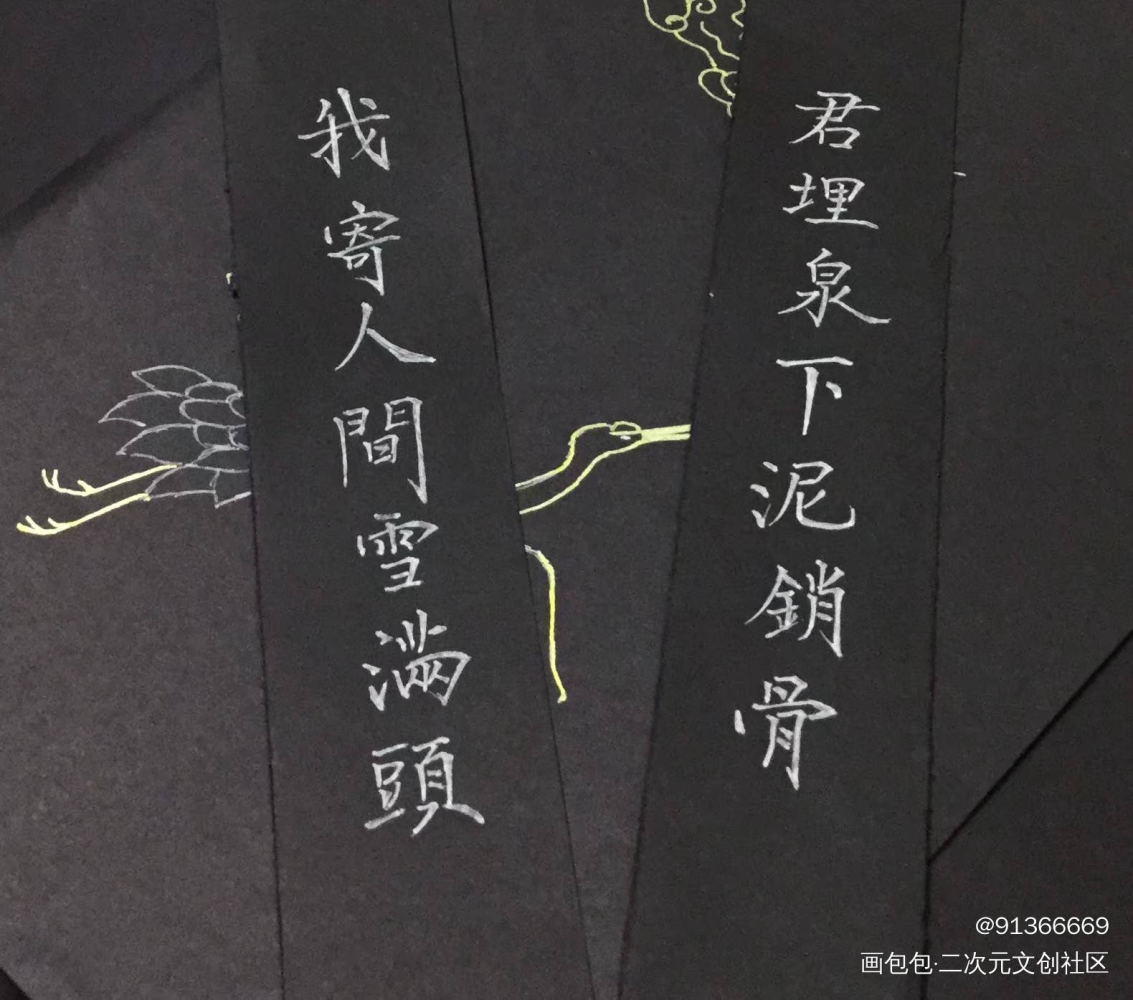 君埋泉下泥銷骨
我寄人間雪滿頭
@91366669
画包包·二次元文创社区